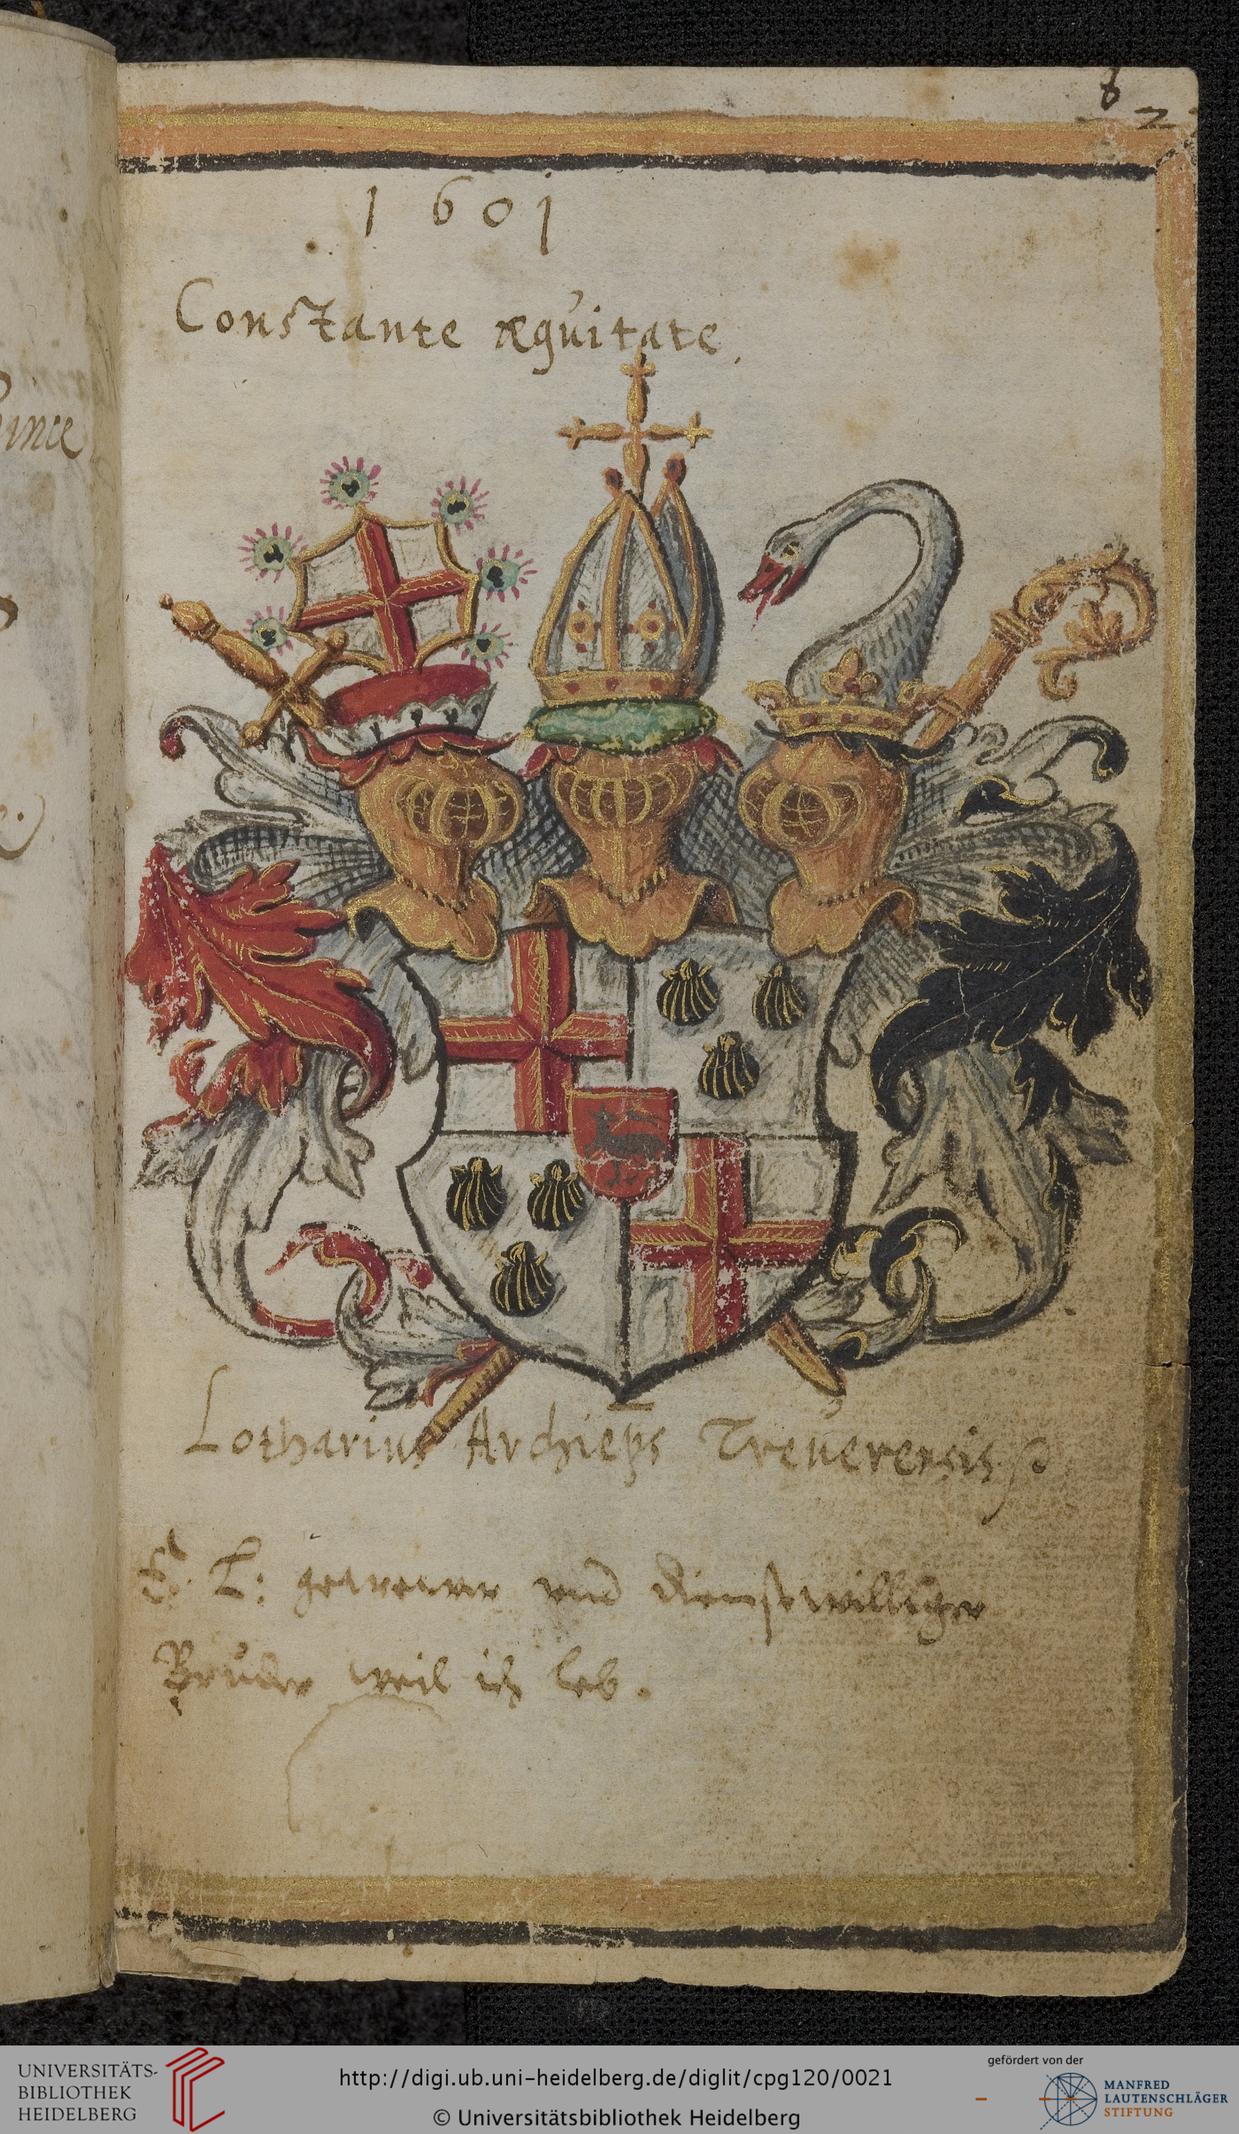 8
2
1601
Constante æquitate.
Lotharius Archieps Treuerensis
E. L: getrewer vnd dienstwilliger
Bruder weil ich leb.
UNIVERSITÄTS-
BIBLIOTHEK
HEIDELBERG
http://digi.ub.uni-heidelberg.de/diglit/cpg120/0021
© Universitätsbibliothek Heidelberg
gefördert von der
MANFRED
LAUTENSCHLÄGER
STIFTUNG